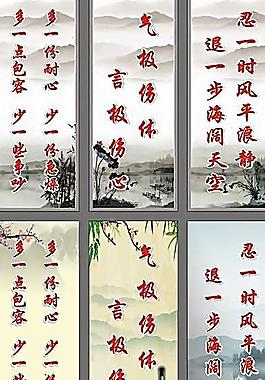 多一份耐心 少一份急燥
多一点包容 少一些争吵
气极伤体
言极伤心
忍一时风平浪静
退一步海阔天空
多一份耐心 少一份
多一点包容 少一些
气极伤体
言极伤
忍一时风平浪静
退一步海阔